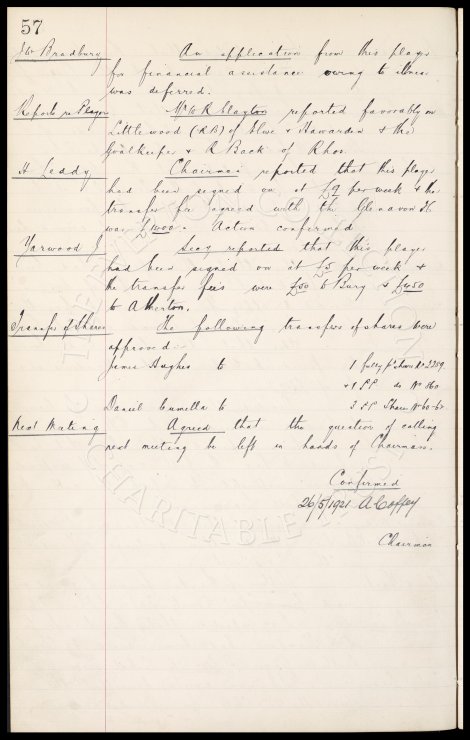 57
Wr Bradbury An application from this player
for financial assistance owing to illness
was deferred.
Reports re Players Mr W R Clayton reported favorably on
Littlewood (RB) of & Hawarden & the
Goalkeeper & R Back of Rhos.
H Leddy Chairman reported that this player
had been signed on at £9 per week & the
transfer fee agreed with the Glenavon FC
was £1000. Action confirmed
Yarwood J Secy reported that this player
had been signed on at £5 per week &
the transfer fees were £50 to Bury & £450
to Atherton.
Transfer of Shares The following transfers of shares were
approved:-
James Hughes to 1 fully pd share No 2259
& 1 P.P. do No 860
Daniel Cumella to 3 P.P. Shares No 60-62
Next Meeting Agreed that the question of calling
next meeting be left in hands of Chairman.
Confirmed
26/5/1921 A Coffey
Chairman
CHARITABLE